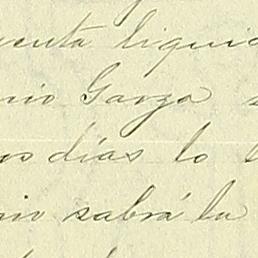 uenta liquid
nio Garza
os días lo
nio sabrá la